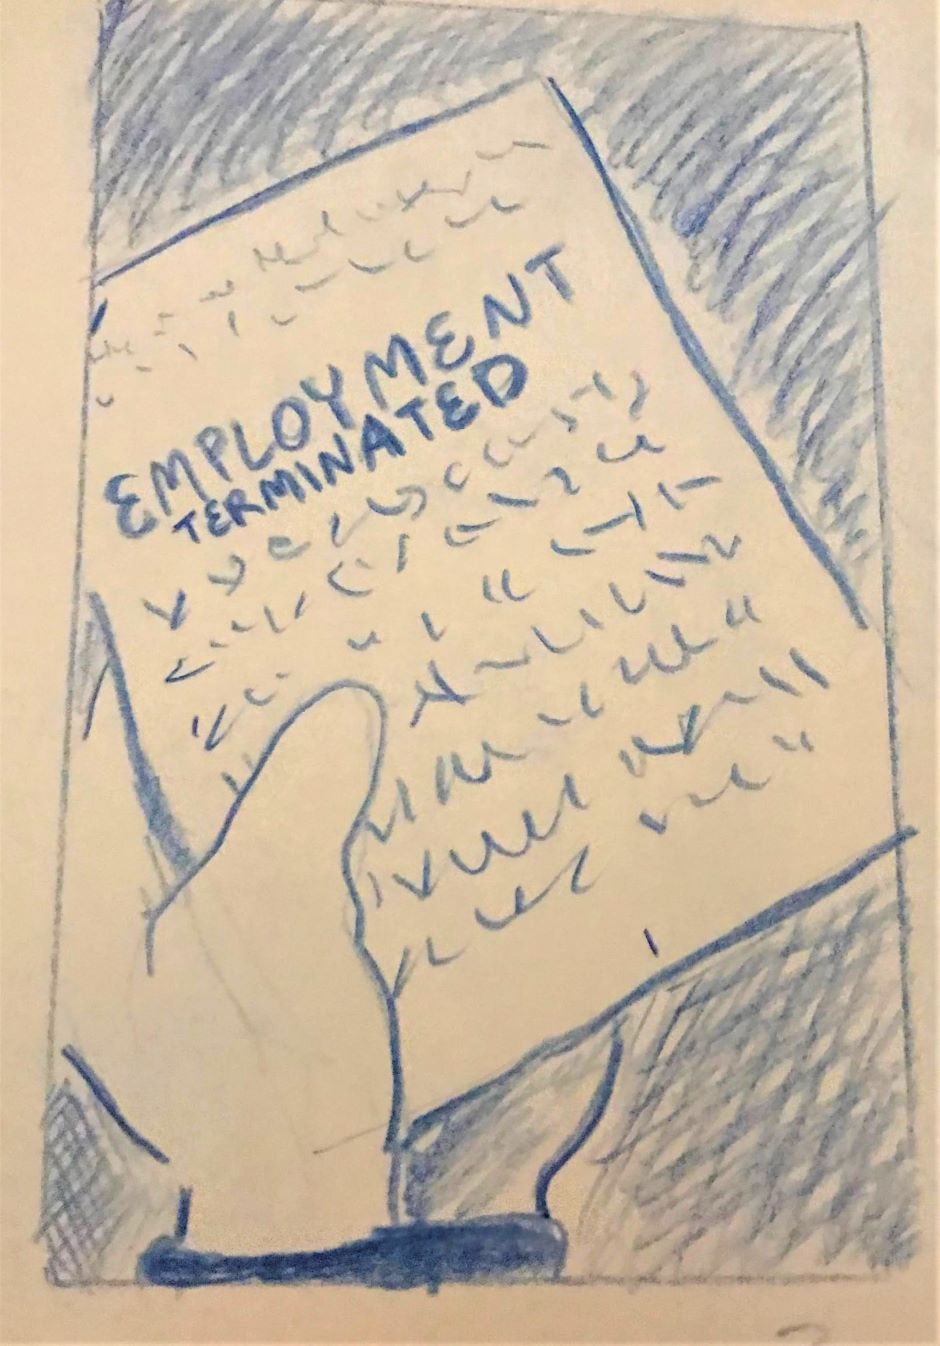 EMPLOYMENT
TERMINATED